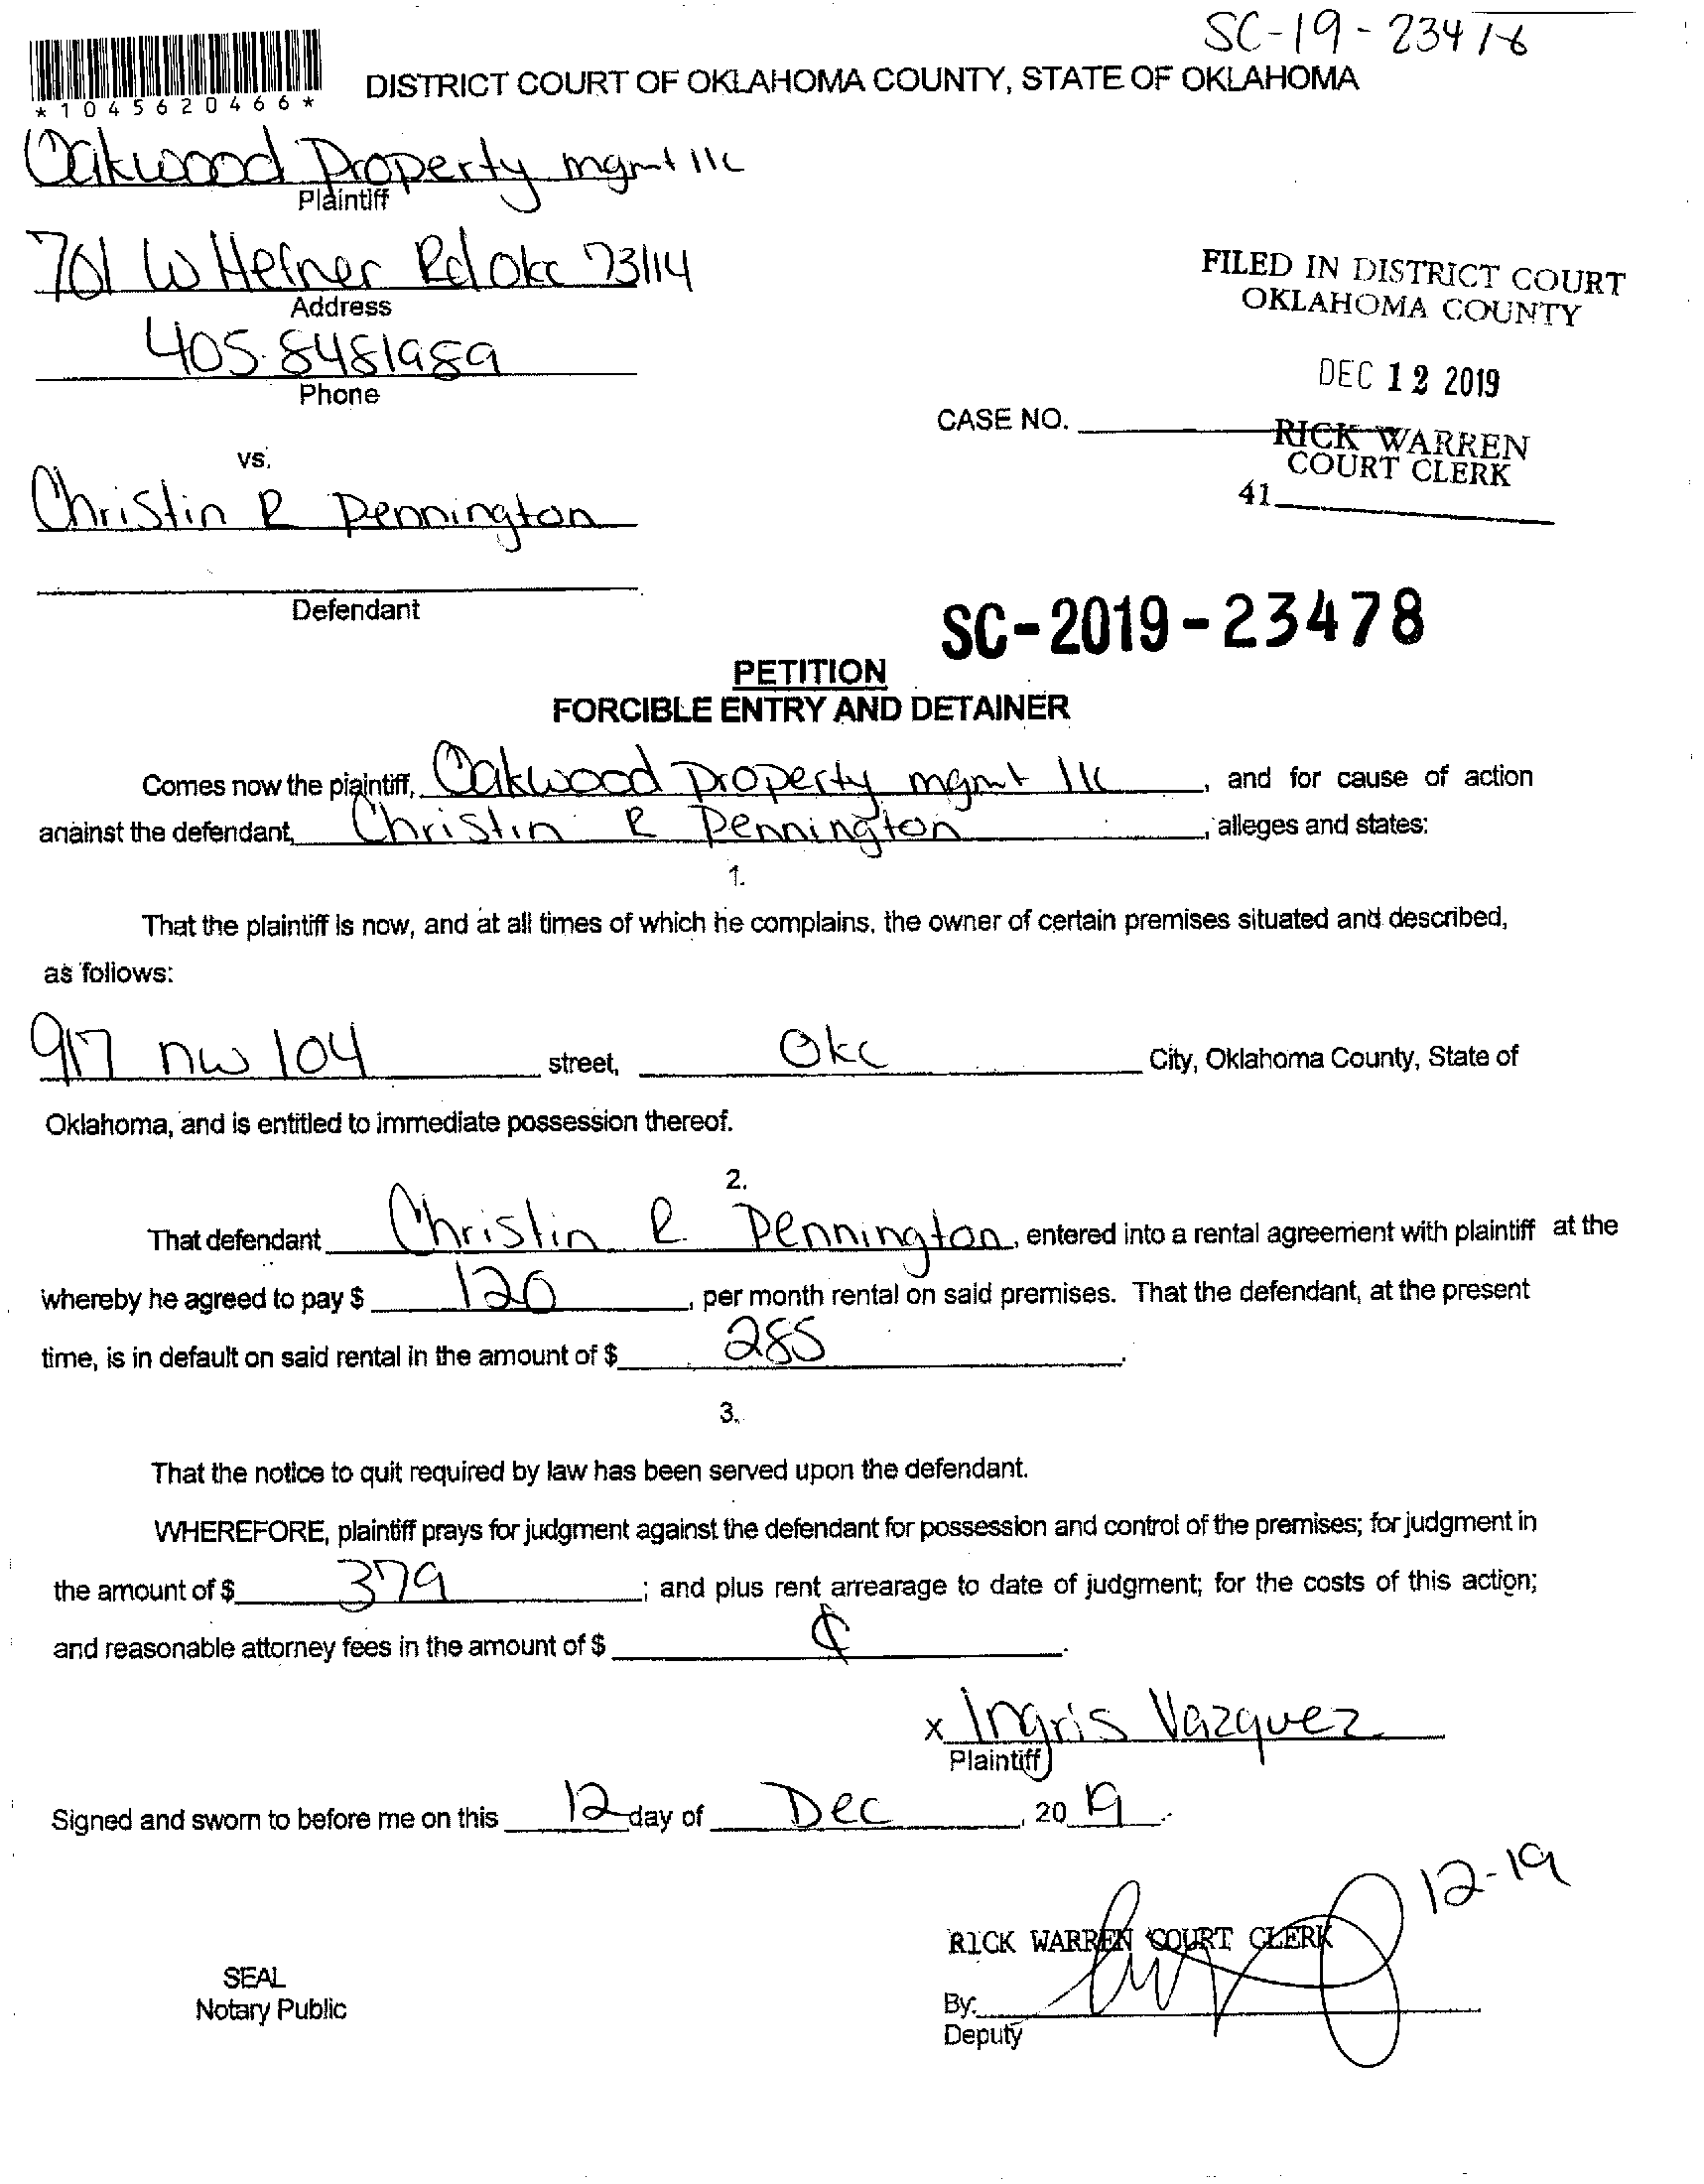 SC-19-23478
*1045620466*
DISTRICT COURT OF OKLAHOMA COUNTY, STATE OF OKLAHOMA
Oakwood Property mgmt llc
Plaintiff
701 W Hefner Rd Okc 73114
Address
405.8481989
Phone
FILED IN DISTRICT COURT
OKLAHOMA COUNTY
DEC 12 2019
CASE NO.
RICK WARREN
COURT CLERK
41
vs.
Christin R Pennington
Defendant
SC-2019-23478
PETITION
FORCIBLE ENTRY AND DETAINER
Comes now the plaintiff, Oakwood Property mgmt llc, and for cause of action
against the defendant, Christin R Pennington, alleges and states:
1.
That the plaintiff is now, and at all times of which he complains, the owner of certain premises situated and described,
as follows:
917 nw 104 street, Okc City, Oklahoma County, State of
Oklahoma, and is entitled to immediate possession thereof.
2.
That defendant Christin R Pennington, entered into a rental agreement with plaintiff at the
whereby he agreed to pay $ 120, per month rental on said premises. That the defendant, at the present
time, is in default on said rental in the amount of $ 285.
3.
That the notice to quit required by law has been served upon the defendant.
WHEREFORE, plaintiff prays for judgment against the defendant for possession and control of the premises; for judgment in
the amount of $ 379; and plus rent arrearage to date of judgment; for the costs of this action;
and reasonable attorney fees in the amount of $.
x Ingris Vazquez
Plaintiff
Signed and sworn to before me on this 12 day of Dec, 20 19.
12-19
RICK WARREN COURT CLERK
SEAL
Notary Public
By:
Deputy